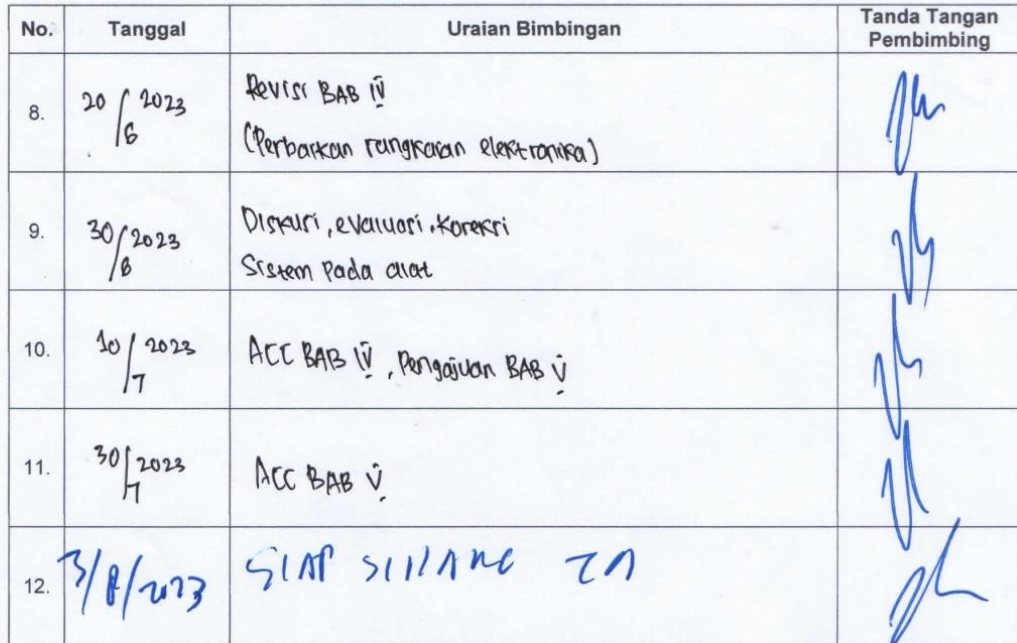 No. Tanggal Uraian Bimbingan Tanda Tangan Pembimbing
8. 20/6 2023 Revisi BAB IV
(Perbaikan rangkaian elektronika)
9. 30/6 2023 Diskusi, evaluasi, koreksi
Sistem pada alat
10. 10/7 2023 ACC BAB IV, Pengajuan BAB V
11. 30/7 2023 ACC BAB V
12. 3/8/2023 SIAP SIDANG TA